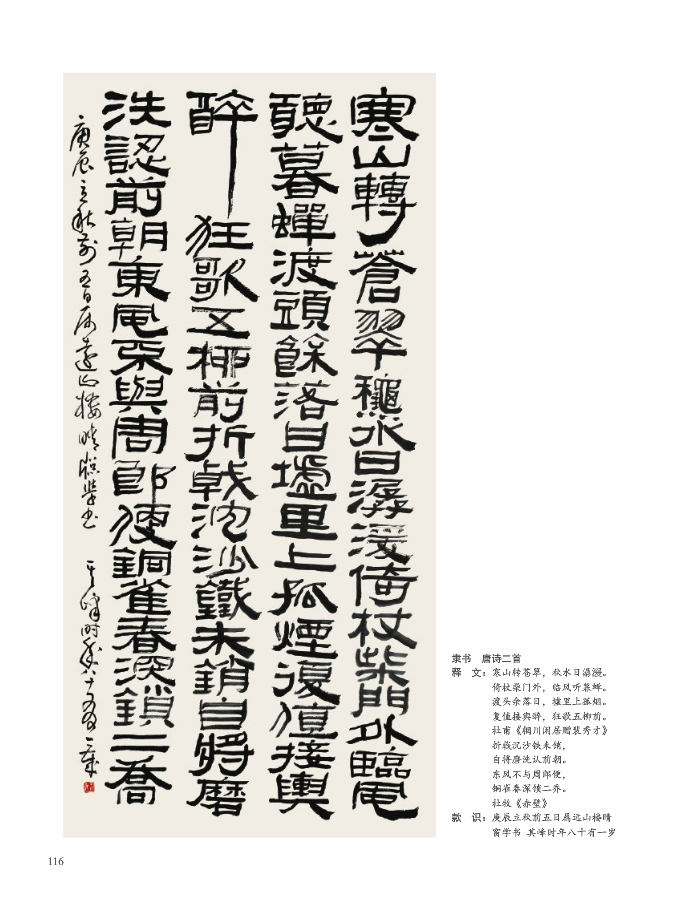 寒山轉蒼翠龝水日潺湲倚杖柴門外臨風
聽暮蟬渡頭餘落日墟里上孤煙復值接輿
醉狂歌五柳前折戟沈沙鐵未銷自將磨
洗認前朝東風不與周郎便銅雀春深鎖二喬
庚辰立秋前五日属遠山樓晴窓學書 其峰時年八十有一歲
隶书 唐诗二首
释 文：寒山转苍翠，秋水日潺湲。
倚杖柴门外，临风听暮蝉。
渡头余落日，墟里上孤烟。
复值接舆醉，狂歌五柳前。
杜甫《辋川闲居赠裴秀才》
折戟沉沙铁未销，
自将磨洗认前朝。
东风不与周郎便，
铜雀春深锁二乔。
杜牧《赤壁》
款 识：庚辰立秋前五日属远山楼晴
窗学书 其峰时年八十有一岁
116